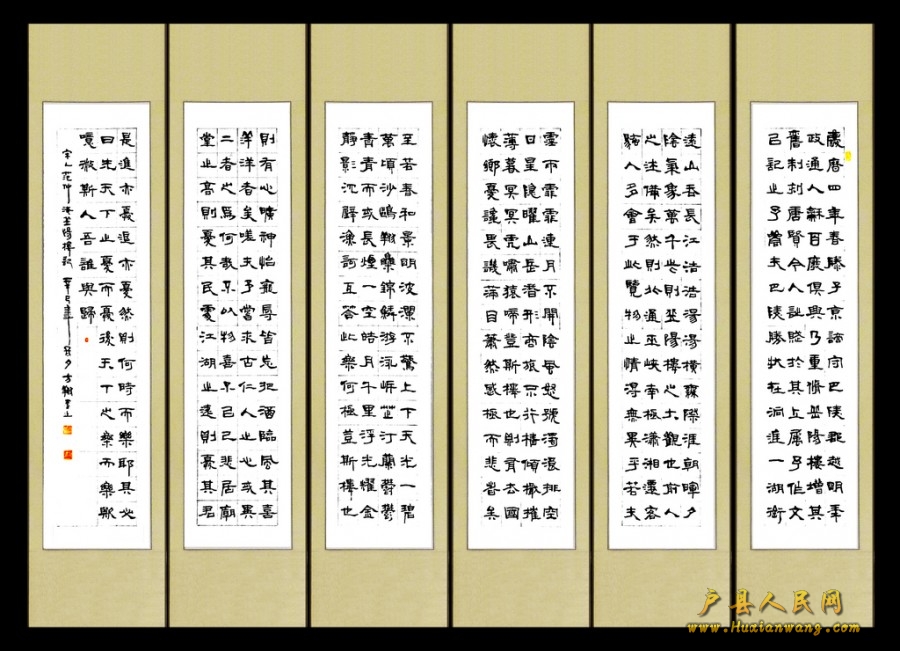 慶曆四年春滕子京謫守巴陵郡越明年
政通人和百廢俱興乃重修岳陽樓增其
舊制刻唐賢今人詩賦於其上屬予作文
以記之予觀夫巴陵勝狀在洞庭一湖銜
遠山吞長江浩浩湯湯橫無際涯朝暉夕
陰氣象萬千此則岳陽樓之大觀也前人
之述備矣然則北通巫峽南極瀟湘遷客
騷人多會于此覽物之情得無異乎若夫
霪雨霏霏連月不開陰風怒號濁浪排空
日星隱曜山岳潛形商旅不行檣傾楫摧
薄暮冥冥虎嘯猿啼登斯樓也則有去國
懷鄉憂讒畏譏滿目蕭然感極而悲者矣
至若春和景明波瀾不驚上下天光一碧
萬頃沙鷗翔集錦鱗游泳岸芷汀蘭鬱鬱
青青而或長煙一空皓月千里浮光耀金
靜影沉璧漁歌互答此樂何極登斯樓也
則有心曠神怡寵辱皆忘把酒臨風其喜
洋洋者矣嗟夫予嘗求古仁人之心或異
二者之為何哉不以物喜不以己悲居廟
堂之高則憂其民處江湖之遠則憂其君
是進亦憂退亦憂然則何時而樂耶其必
曰先天下之憂而憂後天下之樂而樂歟
噫微斯人吾誰與歸
宋人范仲淹岳陽樓記
户县人民网
www.Huxianwang.com